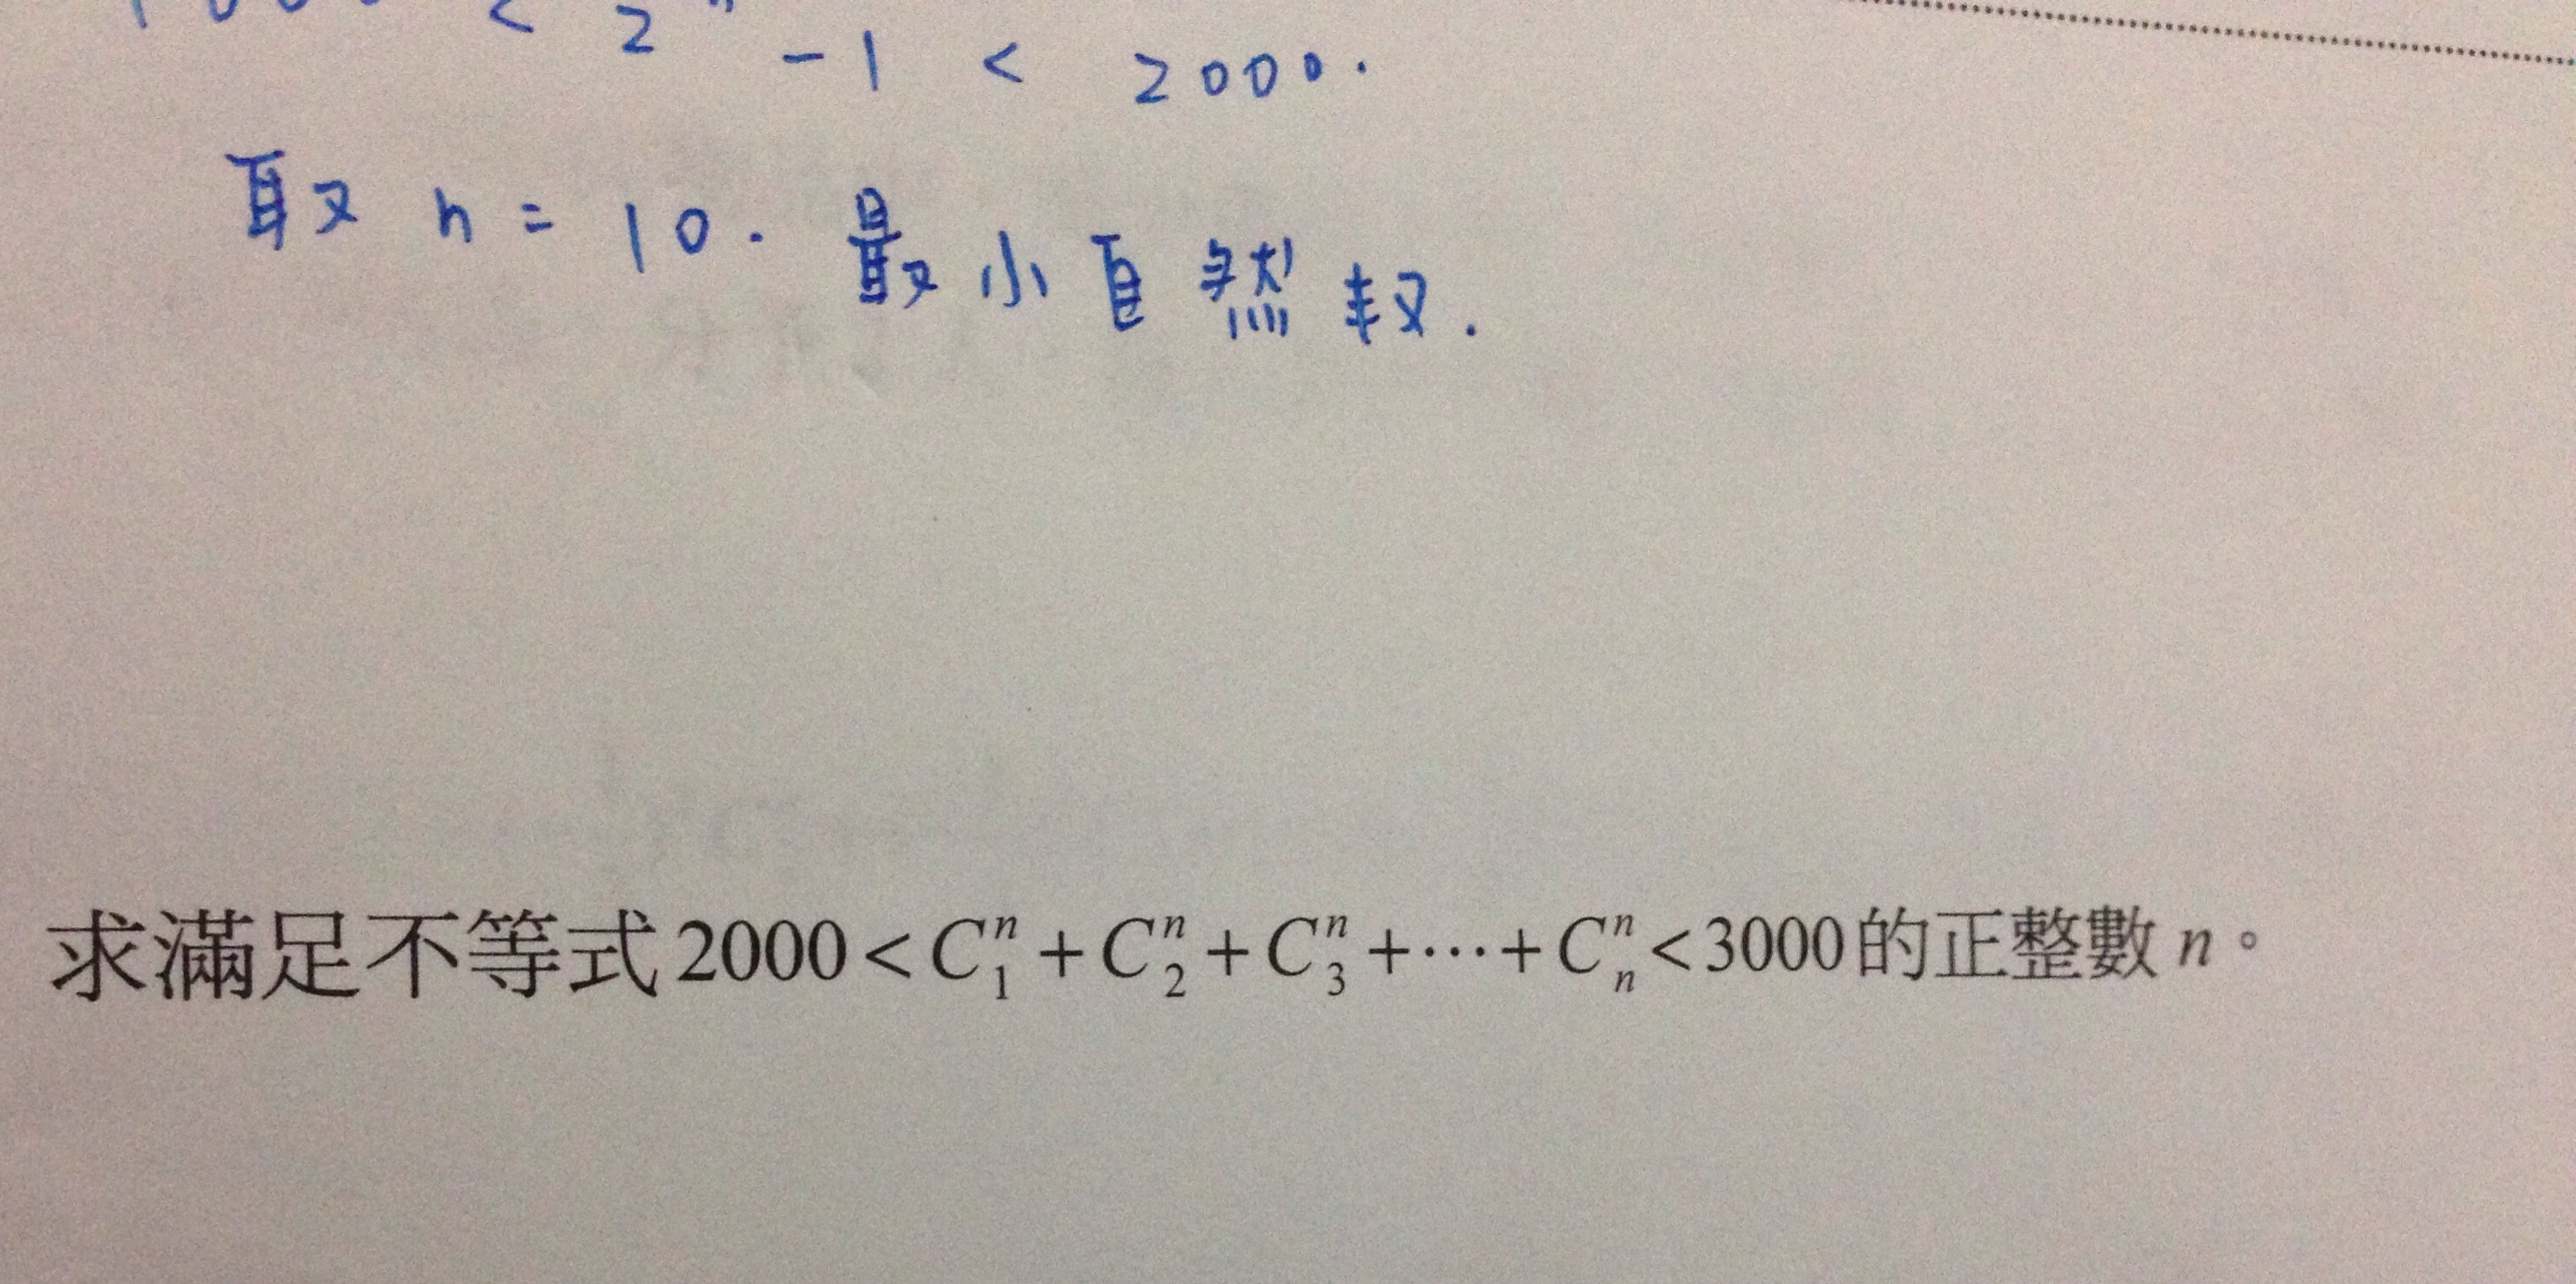 < 2ⁿ - 1 < 2000.
取 n = 10. 最小自然数.
求滿足不等式 2000 < C₁ⁿ + C₂ⁿ + C₃ⁿ + ⋯ + Cₙⁿ < 3000 的正整數 n。